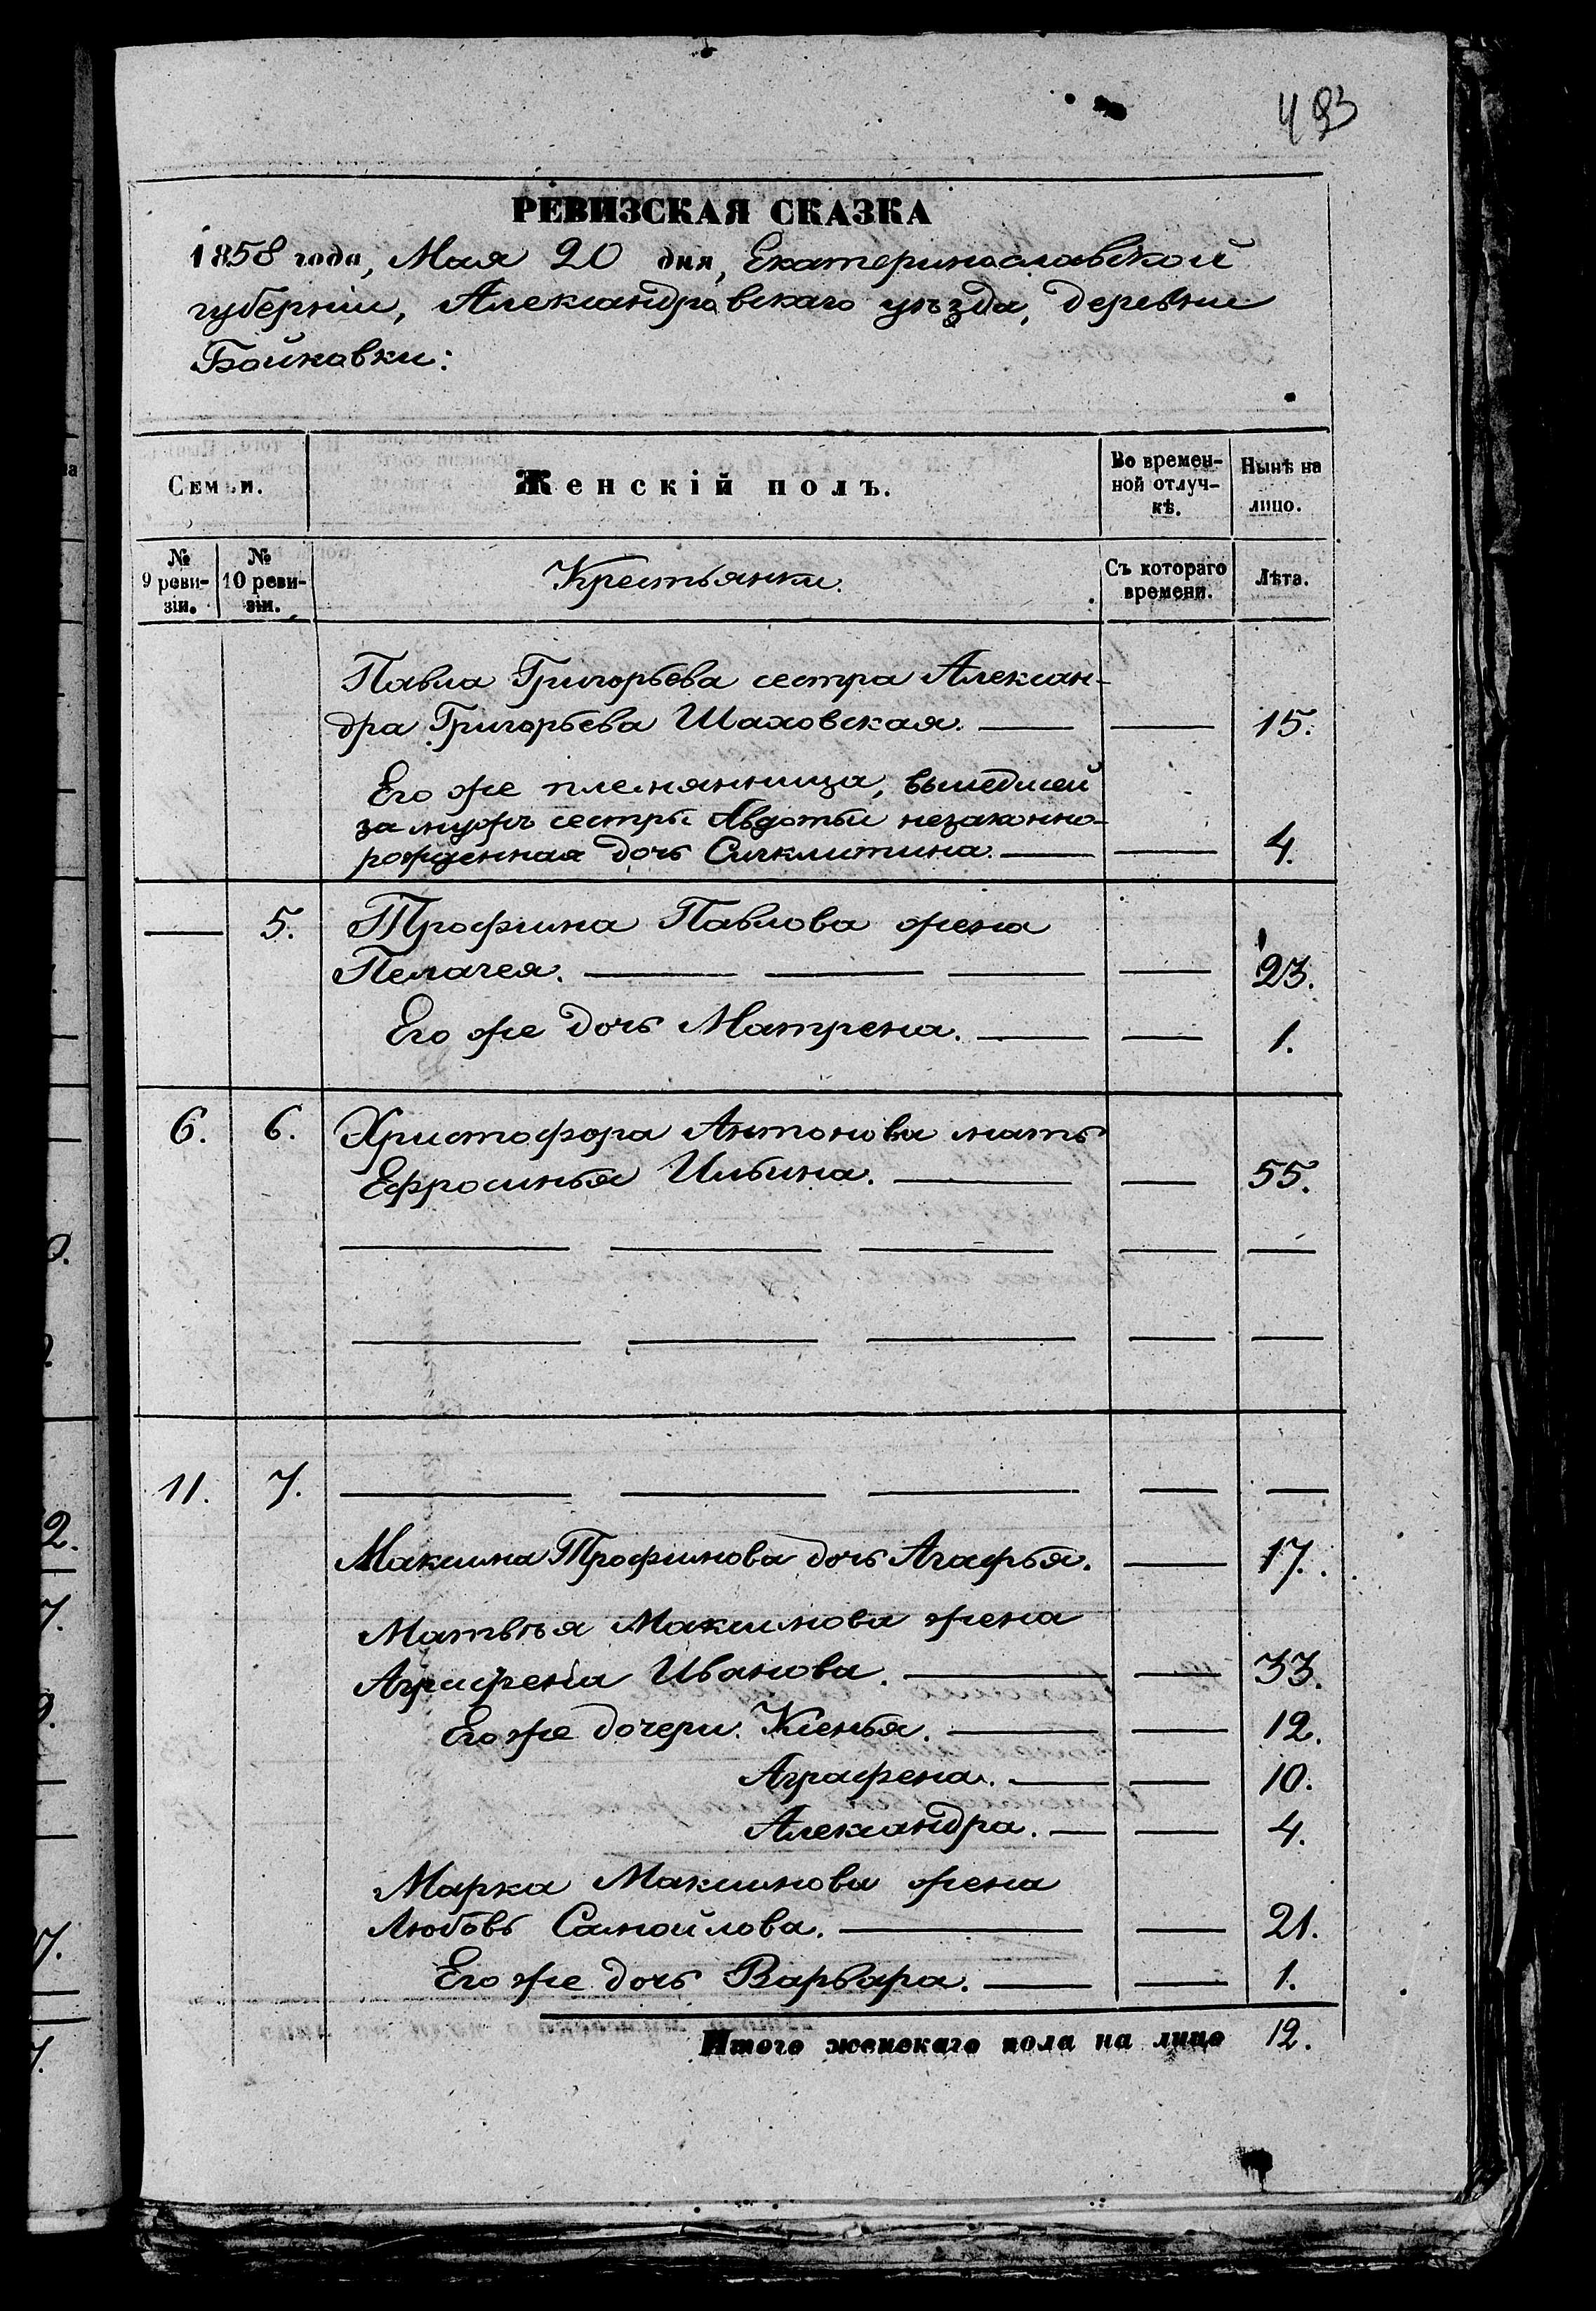 493
РЕВИЗСКАЯ СКАЗКА
1858 года, Мая 20 дня, Екатеринославской
губерніи, Александровскаго уѣзда, деревни
Бойковки:
Семьи. Женскій полъ. Во времен- Нынѣ на
ной отлуч- лицо.
кѣ.
№ № Крестьянки. Съ котораго Лѣта.
9 реви- 10 реви- времени.
зіи. зіи.
Павла Григорьева сестра Алексан-
дра Григорьева Шаховская. — — 15.
Его же племянница, вышедшей
за мужъ сестры Авдотьи незаконно-
рожденная дочь — — 4.
— 5. Трофима Павлова жена
Пелагея. — — — — 23.
Его же дочь Матрена. — — 1.
6. 6. Христофора Антонова мать
Ефросинья Ильина. — — 55.
— — — — —
— — — — —
11. 7. — — — — —
Максима Трофимова дочь Агафья. — 17.
Матвѣя Максимова жена
Аграфена Иванова. — — 33.
Его же дочери. Ксенья. — — 12.
Аграфена. — — 10.
Александра. — — 4.
Марка Максимова жена
Любовь Самойлова. — — 21.
Его же дочь Варвара. — — 1.
Итого женскаго пола на лицо 12.